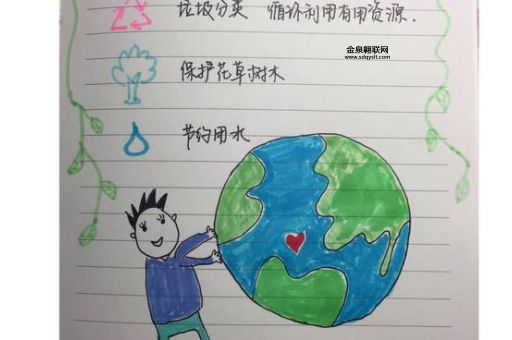 垃圾分类 循环利用有用资源.
金泉翱联网
www.sdqyslt.com
保护花草树木
节约用水